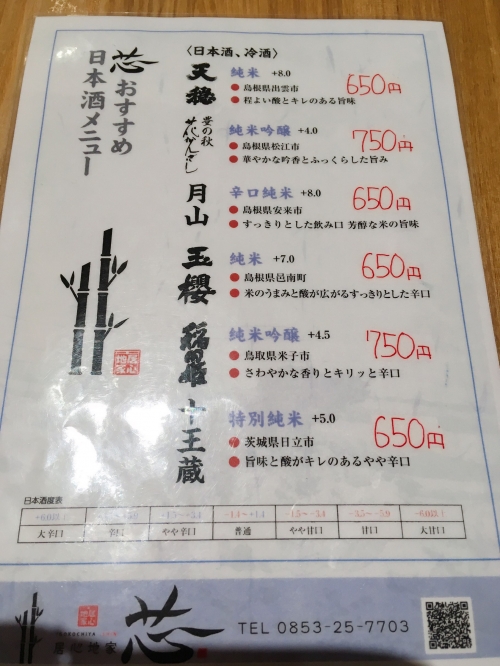 芯おすすめ
日本酒メニュー
〈日本酒、冷酒〉
天穏
純米 +8.0
650円
● 島根県出雲市
● 程よい酸とキレのある旨味
豊の秋
花かんざし
純米吟醸 +4.0
750円
● 島根県松江市
● 華やかな吟香とふっくらした旨み
月山
辛口純米 +8.0
650円
● 島根県安来市
● すっきりとした飲み口 芳醇な米の旨味
玉櫻
純米 +7.0
650円
● 島根県邑南町
● 米のうまみと酸が広がるすっきりとした辛口
稲田姫
純米吟醸 +4.5
750円
● 鳥取県米子市
● さわやかな香りとキリッと辛口
十王蔵
特別純米 +5.0
650円
● 茨城県日立市
● 旨味と酸がキレのあるやや辛口
日本酒度表
-1.5～-3.4
大辛口 辛口 やや辛口 普通 やや甘口 甘口 大甘口
居心地家
芯
TEL 0853-25-7703